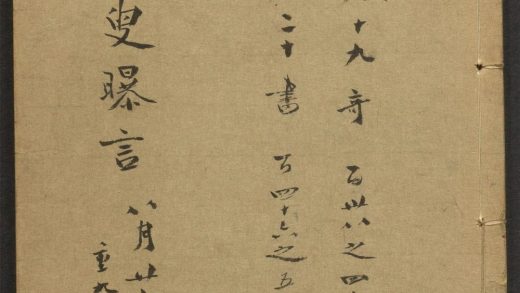 十九奇 百卅八之四
二十書 百四十六之五
叟曝言 八月廿
重